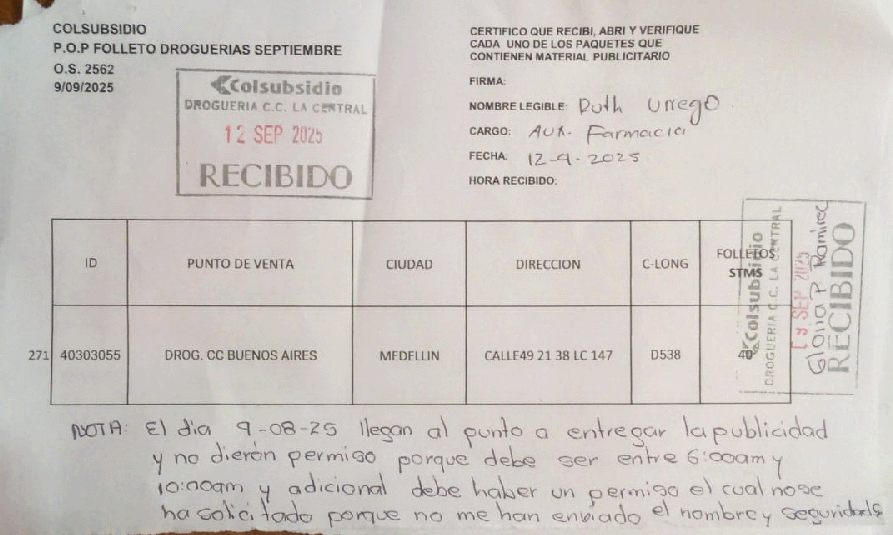 COLSUBSIDIO
P.O.P FOLLETO DROGUERIAS SEPTIEMBRE
O.S. 2562
9/09/2025
Colsubsidio
DROGUERIA C.C. LA CENTRAL
12 SEP 2025
RECIBIDO
CERTIFICO QUE RECIBI, ABRI Y VERIFIQUE
CADA UNO DE LOS PAQUETES QUE
CONTIENEN MATERIAL PUBLICITARIO
FIRMA:
NOMBRE LEGIBLE: Ruth Urrego
CARGO: Aux. Farmacia
FECHA: 12-9-2025
HORA RECIBIDO:
ID PUNTO DE VENTA CIUDAD DIRECCION C-LONG FOLLETOS
STMS
271 40303055 DROG. CC BUENOS AIRES MEDELLIN CALLE49 21 38 LC 147 D538 40
Colsubsidio
DROGUERIA C.C. LA CENTRAL
SEP 2025
Gloria P Ramirez
RECIBIDO
NOTA: El dia 9-08-25 llegan al punto a entregar la publicidad
y no dierón permiso porque debe ser entre 6:00am y
10:00am y adicional debe haber un permiso el cual no se
ha solicitado porque no me han enviado el nombre y